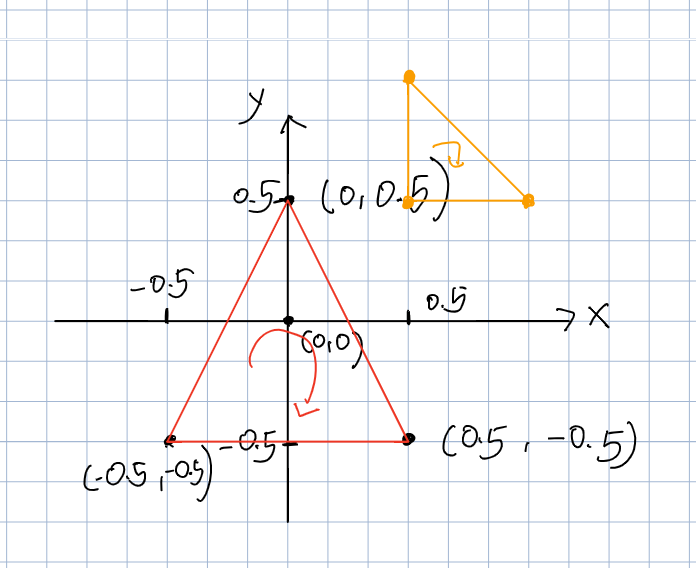 y
0.5
(0, 0.5)
-0.5
0.5
x
(0,0)
-0.5
(0.5, -0.5)
(-0.5,-0.5)